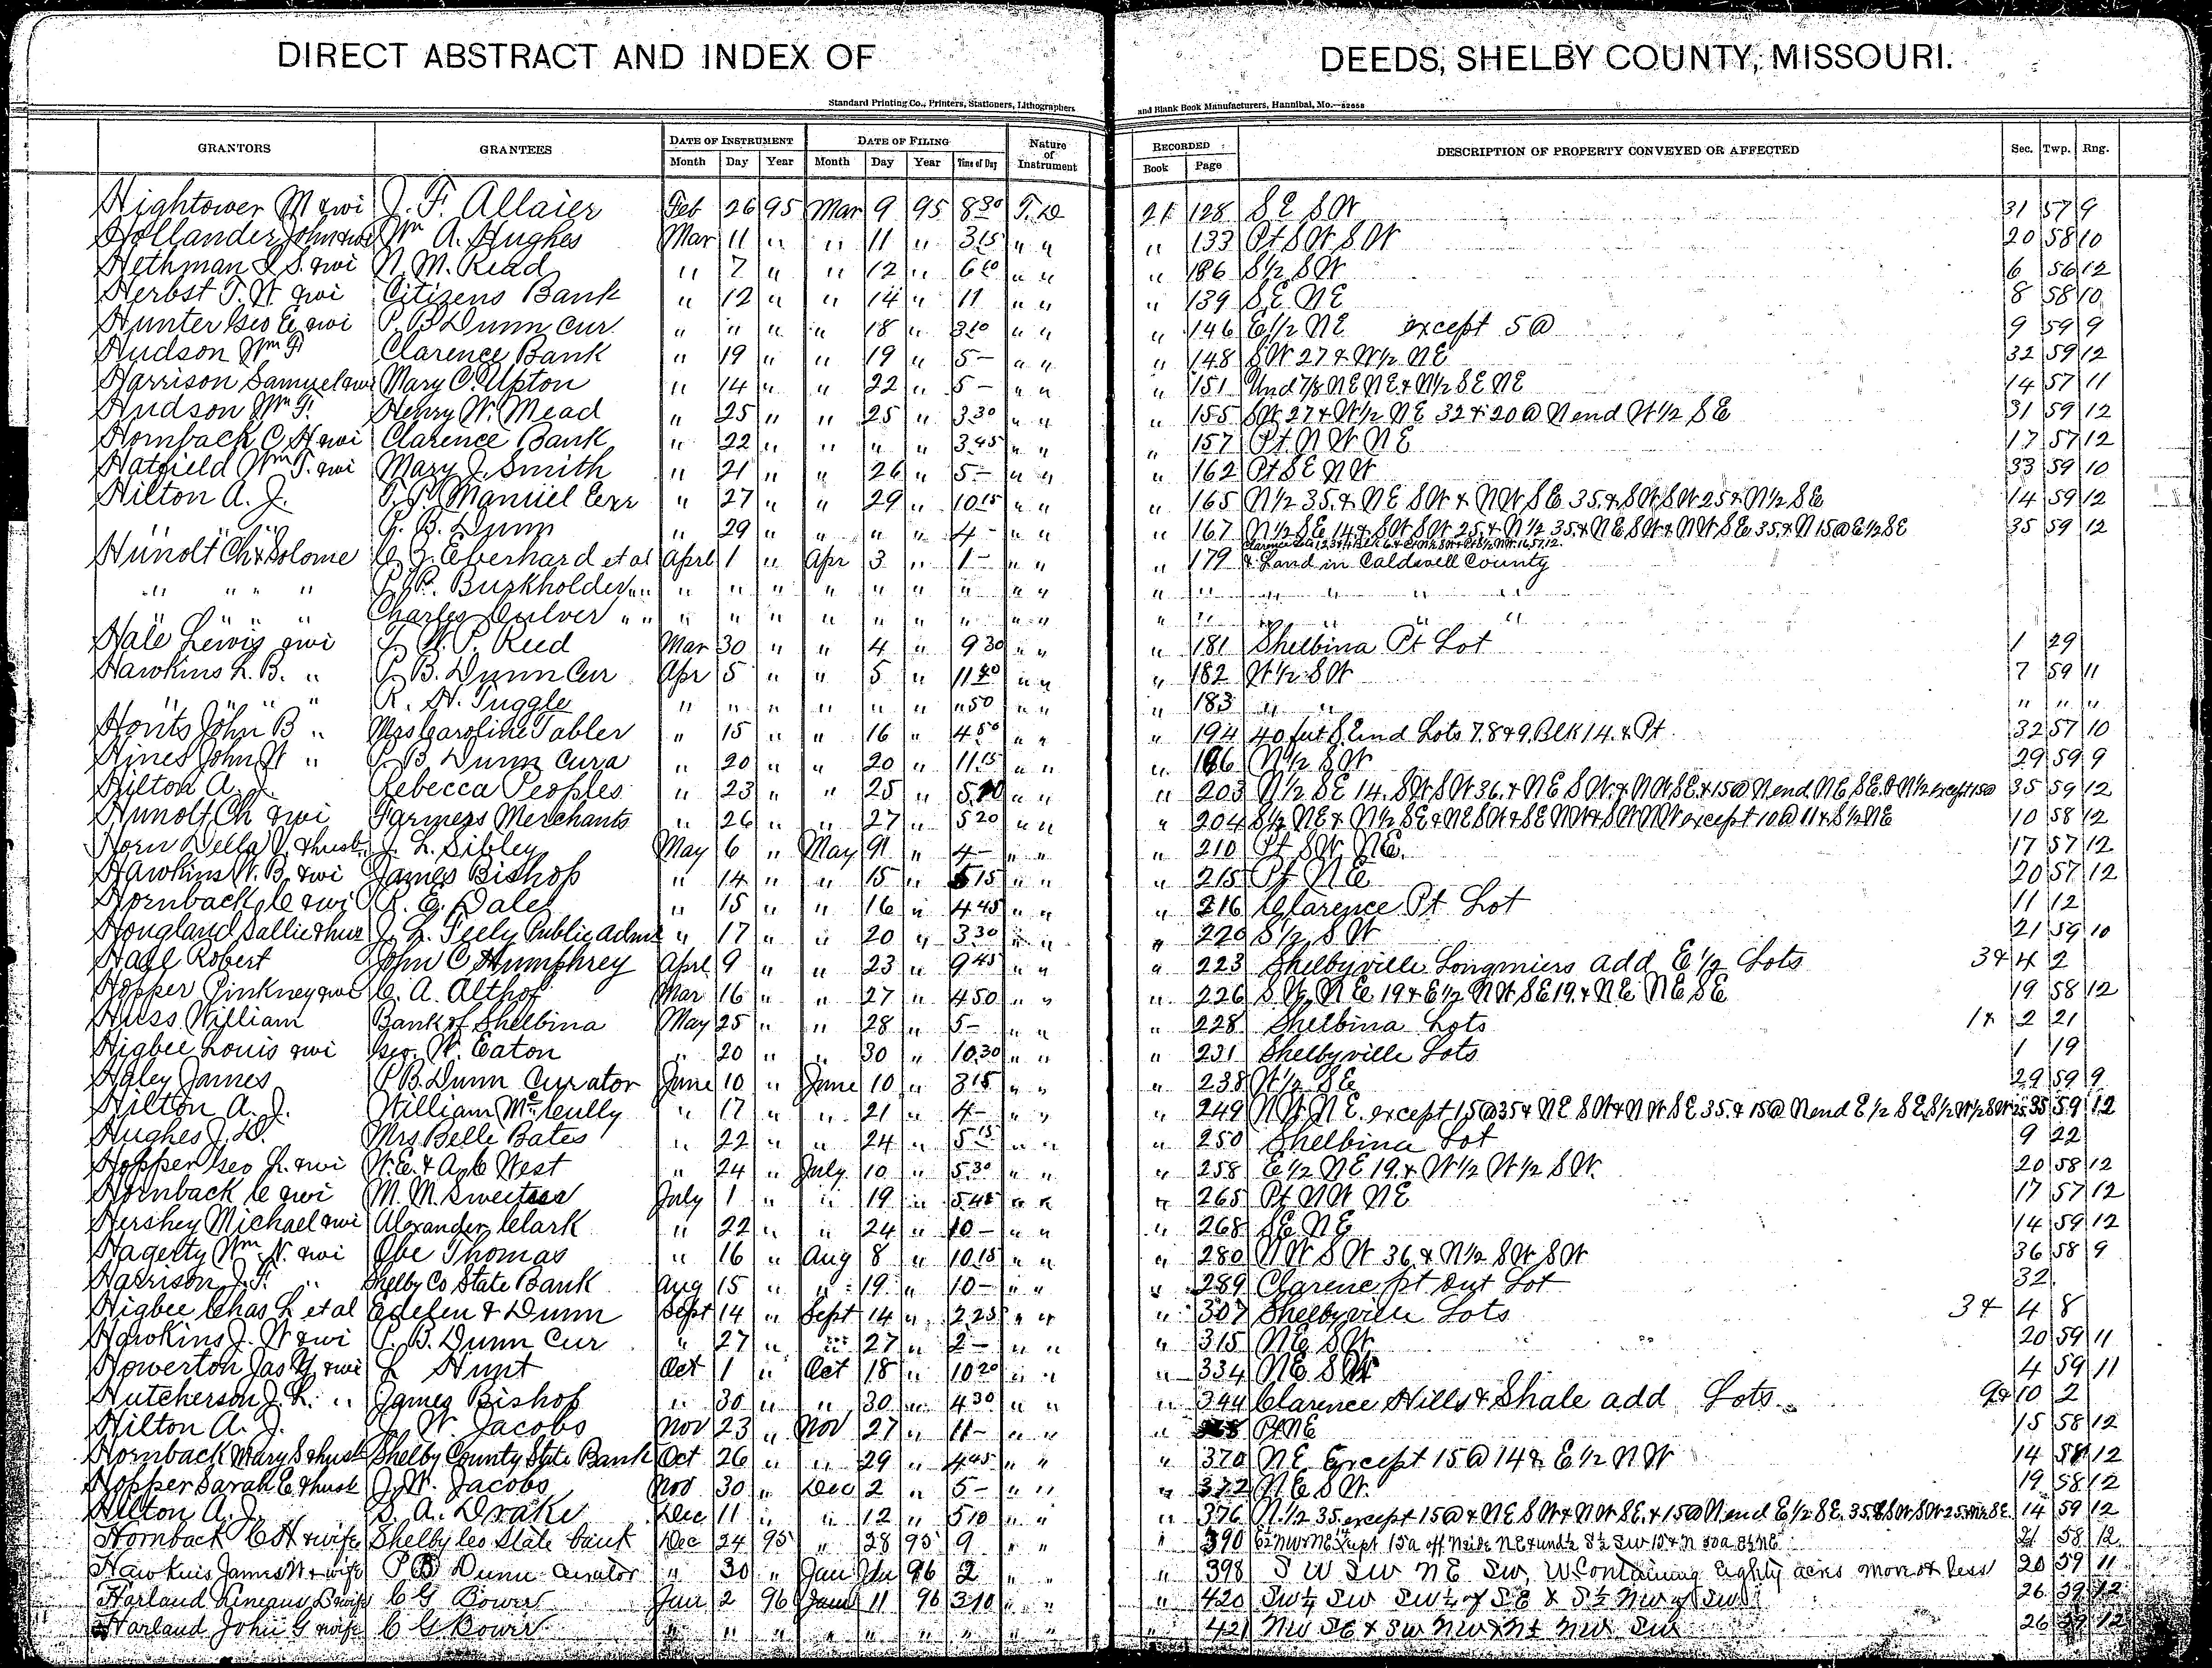 DIRECT ABSTRACT AND INDEX OF DEEDS, SHELBY COUNTY, MISSOURI.
Standard Printing Co., Printers, Stationers, Lithographers and Blank Book Manufacturers, Hannibal, Mo.—52658
GRANTORS GRANTEES DATE OF INSTRUMENT DATE OF FILING Nature of Instrument RECORDED DESCRIPTION OF PROPERTY CONVEYED OR AFFECTED Sec. Twp. Rng.
Month Day Year Month Day Year Time of Day Book Page
Hightower M & wi J. F. Allaier Feb 26 95 Mar 9 95 8 30 T. D 21 128 S E S W 31 57 9
Hollander John & wi Wm A. Hughes Mar 11 " " 11 " 3 15 " " " 133 Pt S W S W 20 58 10
Hethman I. S. & wi N. M. Read " 7 " " 12 " " " " 186 S 1/2 S W 6 56 12
Herbst T. W & wi Citizens Bank " 12 " " 14 " 11 " " " 139 S. E. N E 8 58 10
Hunter Geo E & wi P. B Dunn Cur. " " " " 18 " 3 10 " " " 146 E 1/2 N E except 5 @ 9 59 9
Hudson Wm F Clarence Bank " 19 " " 19 " 5 – " " " 148 S W 27 & W 1/2 N E 32 59 12
Harrison Samuel & wi Mary C. Upton " 14 " " 22 " 5 – " " " 151 Und 7/8 N E N E & N 1/2 S E N E 14 57 11
Hudson Wm F. Henry W. Mead " 25 " " 25 " 3 30 " " " 155 S W 27 & W 1/2 N E 32 & 20 @ N end W 1/2 S E 31 59 12
Hornback C. H & wi Clarence Bank " 22 " " " " 3 45 " " " 157 Pt. N W N E 17 57 12
Hatfield Wm T. & wi Mary J. Smith " 21 " " 26 " 5 – " " " 162 Pt S E N W 33 59 10
Hilton A. J. Manuel " 27 " " 29 " 10 15 " " " 165 N 1/2 35. & N E S W & N W S E. 35. & S W S W 25 & N 1/2 S E 14 59 12
" " " P. B. Dunn " 29 " " " " 4 – " " " 167 N 1/2 S E 14 & S W S W 25. & N 1/2 35 & N E S W & N W S E. 35. & N 15 @ E 1/2 S E 35 59 12
Hunolt Ch & Solome C. J. Eberhard et al Aprl 1 " Apr 3 " 1 – " " " 179 & Land in Caldwell County
" " " " P. P. Burkholder " " " " " " " " " " " " " " " " "
" " " " Charles Culver " " " " " " " " " " " " " " " " "
Hale Lewis & wi W. P. Reed Mar 30 " " 4 " 9 30 " " " 181 Shelbina Pt Lot 1 29
Hawkins L. B. " P. B. Dunn Cur Apr 5 " " 5 " " " " 182 W 1/2 S W 7 59 11
" " " " R. H. Tuggle " " " " " " " 50 " " " 183 " " " " "
Honts John B " Mrs Caroline Tabler " 15 " " 16 " 4 50 " " " 194 40 feet S. End Lots 7. 8 & 9. Blk 14. & Pt 32 57 10
Hines John W " P. B. Dunn Cura " 20 " " 20 " 11 15 " " " 196 N 1/2 S W 29 59 9
Hilton A. J. Rebecca Peoples " 23 " " 25 " " " " 203 N 1/2 S E 14. S W S W 36. & N E S W. & N W S E. & 15 @ N end N E S E. & N 1/2 except 15 @ 35 59 12
Hunolt Ch & wi Farmers Merchants " 26 " " 27 " 5 20 " " " 204 S 1/2 N E & N 1/2 S E & N E S W & S E N W & S W N W except 10 @ 11 & S 1/2 N E 10 58 12
Horn Della V. & husb. J. L. Sibley May 6 " May " 4 – " " " 210 Pt S W N E. 17 57 12
Hawkins W. B. & wi James Bishop " 14 " " 15 " 5 15 " " " 215 Pt N E 20 57 12
Hornback C & wi R. E. Dale " 15 " " 16 " 4 45 " " " 216 Clarence Pt Lot 11 12
Hougland Sallie & hus J. L. Feely Public Admr " 17 " " 20 " 3 30 " " " 220 S 1/2 S W 21 59 10
Hall Robert John C Humphrey Aprl 9 " " 23 " 9 45 " " " 223 Shelbyville Longmiers add E 1/2 Lots 3 & 4 2
Hopper Pinkney & wi C. A. Althof Mar 16 " " 27 " 4 50 " " " 226 S W N E 19 & E 1/2 N W S E 19. & N E N E S E 19 58 12
Huss William Bank of Shelbina May 25 " " 28 " 5 – " " " 228 Shelbina Lots 1 & 2 21
Higbee Louis & wi Geo. W. Eaton " 20 " " 30 " 10 30 " " " 231 Shelbyville Lots 1 19
Haley James P B. Dunn Curator June 10 " June 10 " 3 15 " " " 238 W 1/2 S E 29 59 9
Hilton A. J. William McCully " 17 " " 21 " 4 – " " " 249 N W N E. except 15 @ 35 & N E S W & N W S E 35. & 15 @ N end E 1/2 S E. S 1/2 W 1/2 S W 25 35 59 12
Hughes J. D. Mrs Belle Bates " 22 " " 24 " 5 15 " " " 250 Shelbina Lot 9 22
Hopper Geo L. & wi W. E. & A. C West " 24 " July 10 " 5 30 " " " 258 E 1/2 N E 19. & W 1/2 W 1/2 S W. 20 58 12
Hornback C & wi M. M. Sweitser July 1 " " 19 " 5 45 " " " 265 Pt N W N E 17 57 12
Hershey Michael & wi Alexander Clark " 22 " " 24 " 10 – " " " 268 S E N E 14 59 12
Hagerty Wm N. & wi Obe Thomas " 16 " Aug 8 " 10 15 " " " 280 N W S W 36. & N 1/2 S W S W 36 58 9
Harrison J. F. " Shelby Co State Bank Aug 15 " " 19 " 10 – " " " 289 Clarence pt Out Lot 32
Higbee Chas L et al Edelen & Dunn Sept 14 " Sept 14 " 2 25 " " " 307 Shelbyville Lots 3 & 4 8
Hawkins J. W & wi P. B. Dunn Cur " 27 " " 27 " 2 – " " " 315 N E S W 20 59 11
Howerton Jas & wi L Hunt Oct 1 " Oct 18 " 10 20 " " " 334 N E. S W 4 59 11
Hutcherson J. L. " James Bishop " 30 " " 30 " 4 30 " " " 344 Clarence Hills & Shale add Lots 9 & 10 2
Hilton A. J. J. W. Jacobs Nov 23 " Nov 27 " 11 – " " " Pt N E 15 58 12
Hornback Mary S & husb Shelby County State Bank Oct 26 " " 29 " 4 45 " " " 370 N E. Except 15 @ 14 & E 1/2 N W 14 58 12
Hopper Sarah E & husb J. W. Jacobs Nov 30 " Dec 2 " 5 – " " " 372 N E S W. 19 58 12
Hilton A. J. S. A. Drake Dec 11 " " 12 " 5 10 " " " 376 N. 1/2 35. except 15 @ & N E S W & N W S E. & 15 @ N end E 1/2 S E. 35. & S W S W 25. N 1/2 S E. 14 59 12
Hornback C H & wife Shelby Co State bank Dec 24 95 " 28 95 9 " " " 390 58 12
Hawkins James W & wife P B Dunn Curator " 30 " Jan 96 2 " " " 398 S W S W N E S W, W. Containing Eighty acres more or less 20 59 11
Harland & wife C G Bower Jan 2 96 Jan 11 96 3 10 " " " 420 Sw 1/4 Sw Sw 1/4 of S E & S 1/2 Nw of Sw 26 59 12
Harland John G & wife C G Bower " " " " " " " " " " 421 Nw S E & Sw 26 59 12